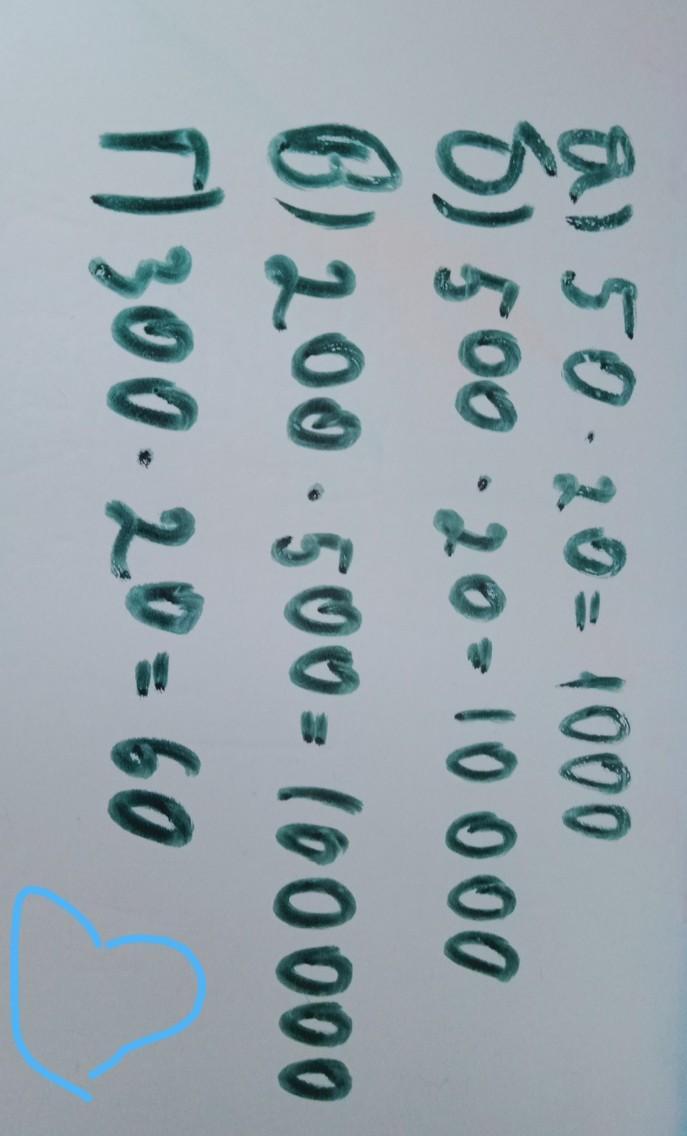 а) 50 · 20 = 1000
б) 500 · 20 = 10000
в) 200 · 500 = 100000
г) 300 · 20 = 60